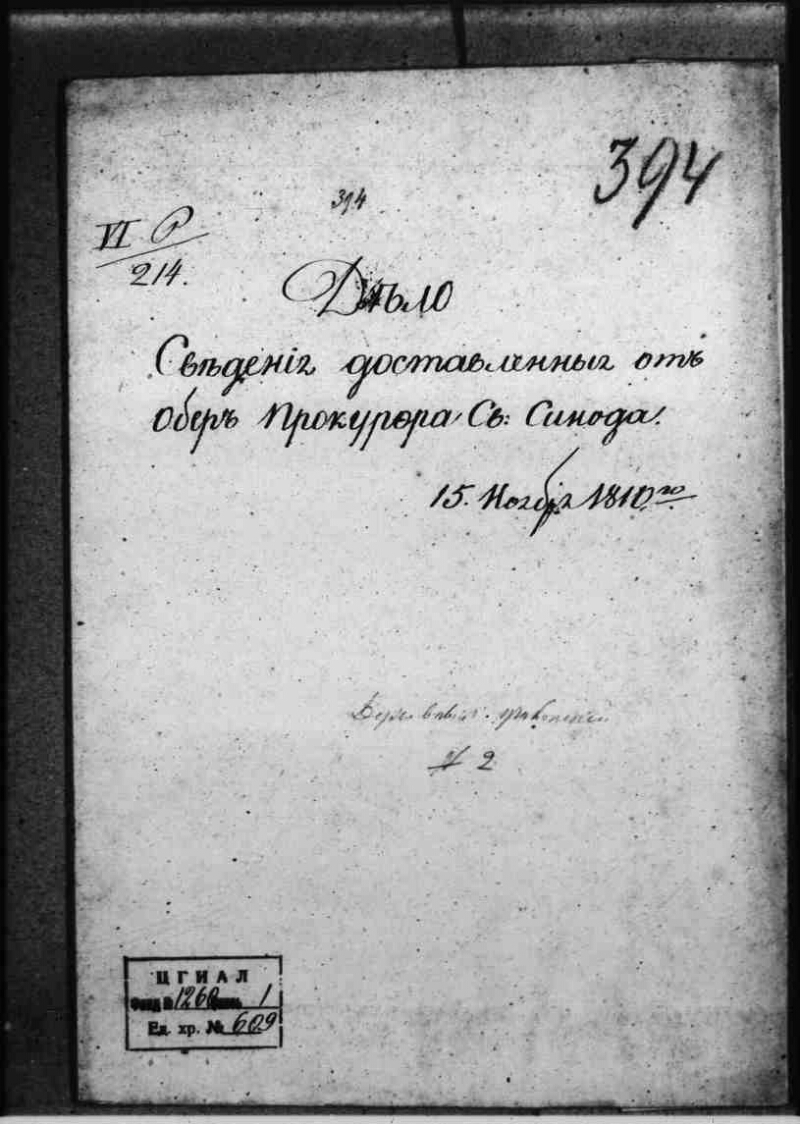 394
394
VI P
214.
Дѣло
Свѣденія доставленныя отъ
Оберъ Прокурора Св: Синода.
15. Ноября 1810.го
2
ЦГИАЛ
Фонд № 1260 опись 1
Ед. хр. № 609